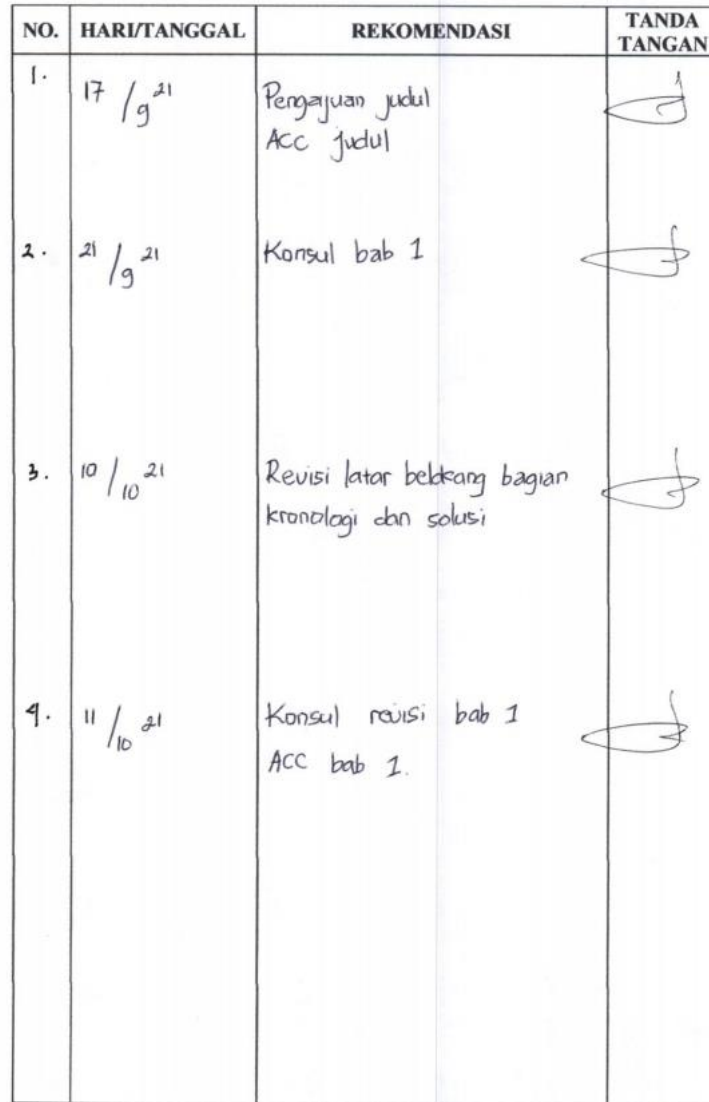 NO. HARI/TANGGAL REKOMENDASI TANDA TANGAN
1. 17/9 21 Pengajuan judul
ACC judul
2. 21/9 21 Konsul bab 1
3. 10/10 21 Revisi latar belakang bagian
kronologi dan solusi
4. 11/10 21 Konsul revisi bab 1
ACC bab 1.